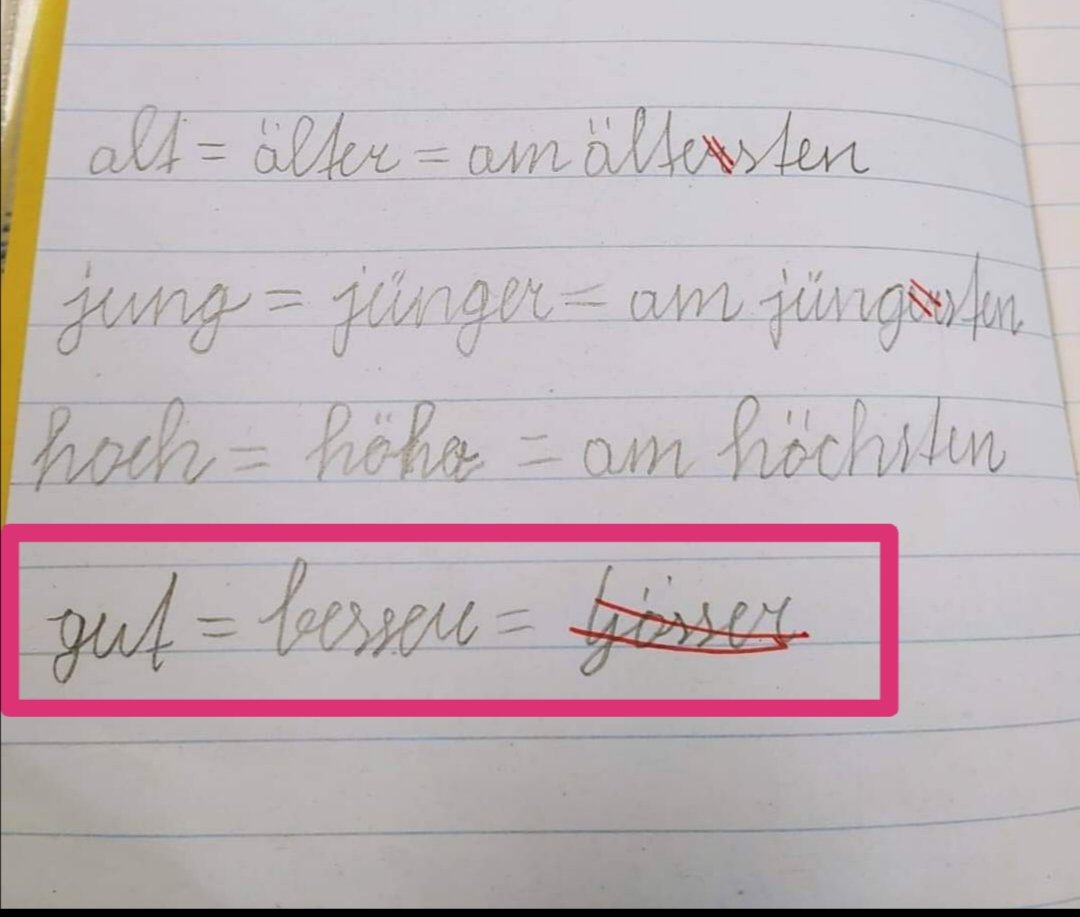 alt = älter = am ältersten
jung = jünger = am jüngersten
hoch = höher = am höchsten
gut = besser = Gösser